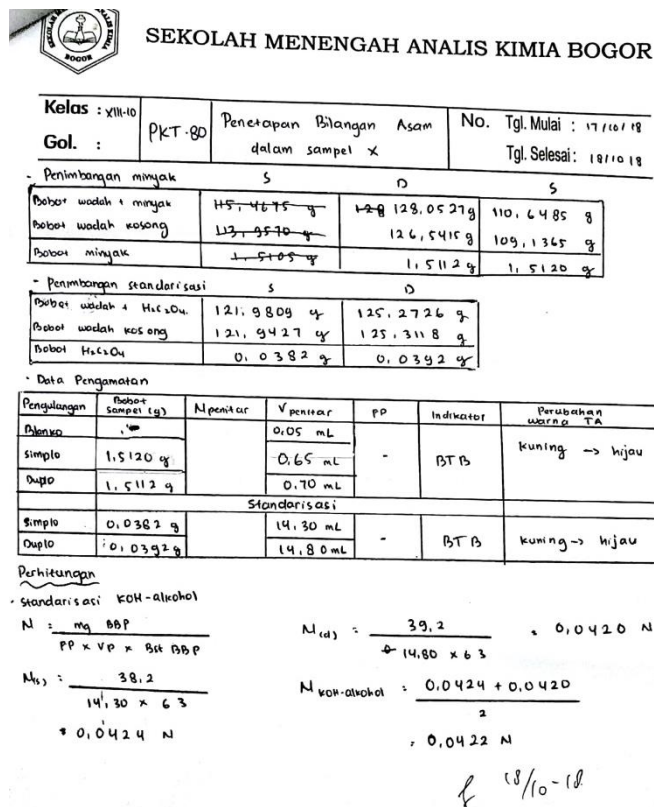 SEKOLAH MENENGAH ANALIS KIMIA BOGOR
BOGOR
Kelas : XIII-10
Gol. :
PKT-80
Penetapan Bilangan Asam
dalam sampel X
No. Tgl. Mulai : 17/10/18
Tgl. Selesai : 18/10 18
- Penimbangan minyak S D S
Bobot wadah + minyak 115,4675 g 128 128,0527g 110,6485 g
Bobot wadah kosong 113,9570 g 126,5415 g 109,1365 g
Bobot minyak 1,5105 g 1,5112 g 1,5120 g
- Penimbangan standarisasi S D
Bobot wadah + H₂C₂O₄ 121,9809 g 125,2726 g
Bobot wadah kosong 121,9427 g 125,3118 g
Bobot H₂C₂O₄ 0,0382 g 0,0392 g
- Data Pengamatan
Pengulangan Bobot sampel (g) N penitar V penitar PP Indikator Perubahan warna TA
Blanko 0,05 mL
Simplo 1,5120 g 0,65 mL - BTB kuning -> hijau
Duplo 1,5112 g 0.70 mL
Standarisasi
Simplo 0,0382 g 14,30 mL - BTB kuning -> hijau
Duplo 0,0392 g 14,80 mL
Perhitungan
- Standarisasi KOH-alkohol
N = mg BBP
PP x Vp x Bst BBP
N(s) = 38,2
14,30 x 63
= 0,0424 N
N(d) = 39,2 = 0,0420 N
14,80 x 63
N KOH-alkohol = 0,0424 + 0,0420
2
= 0,0422 N
18/10-18